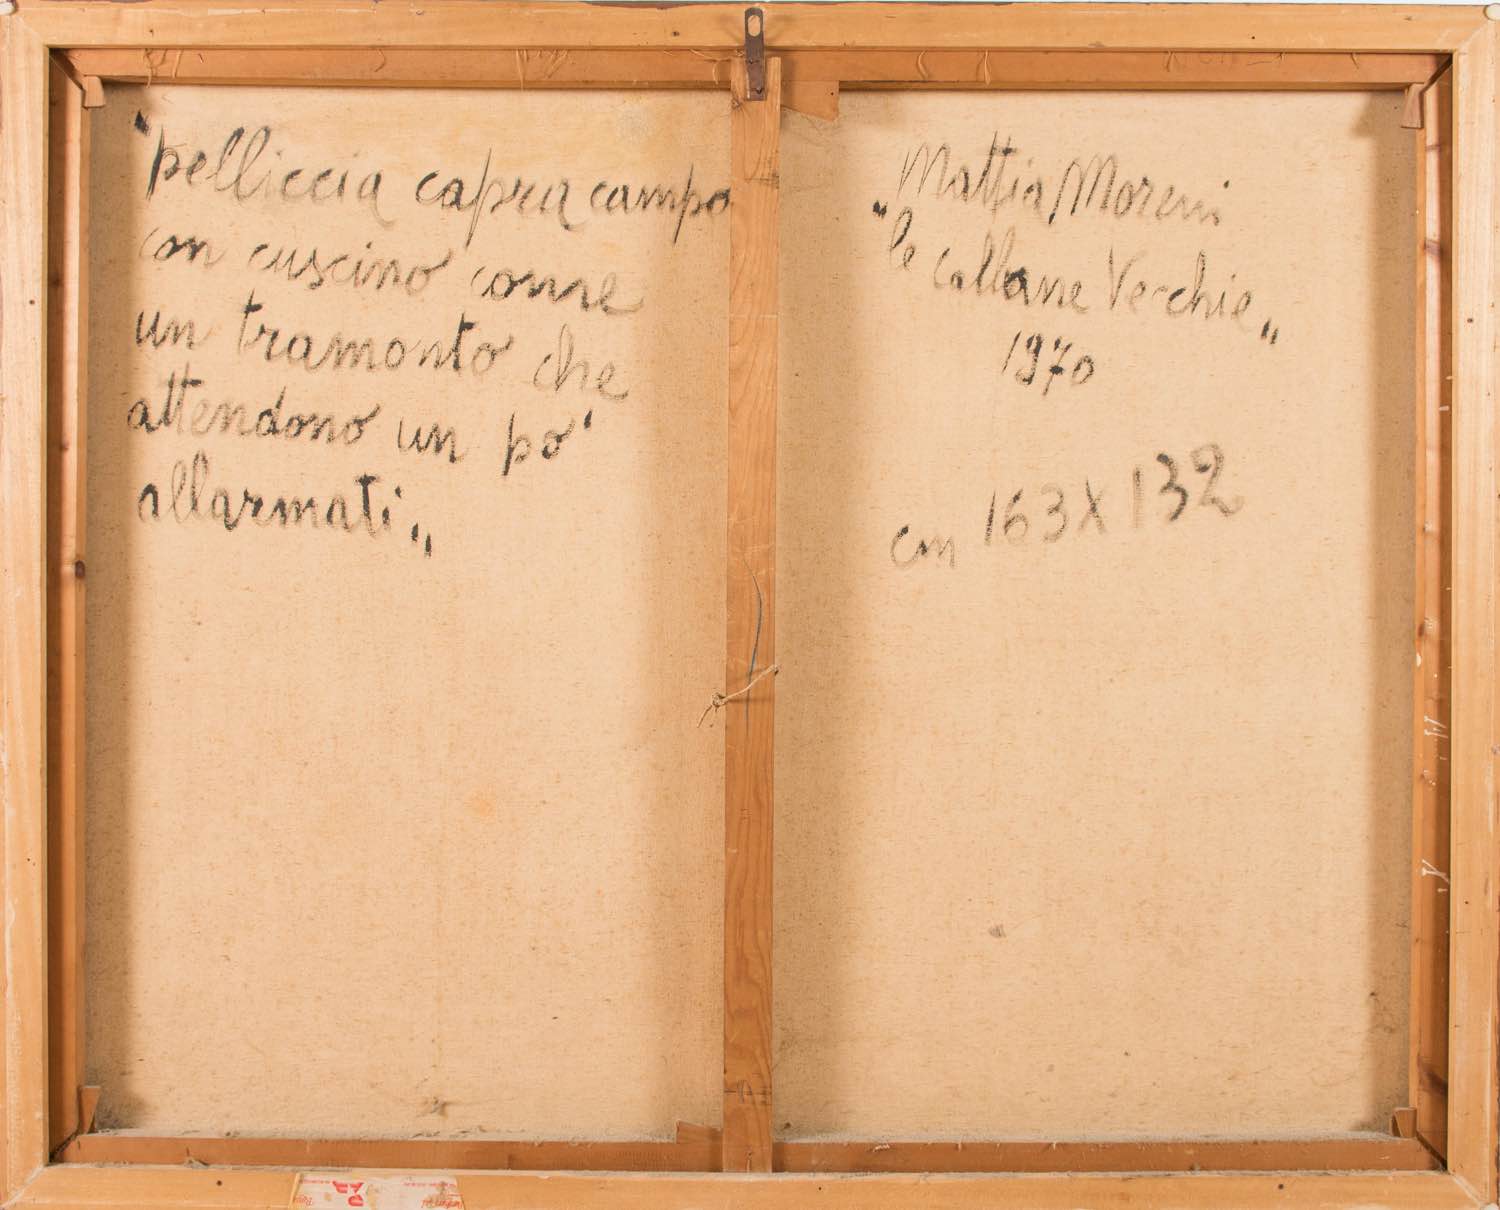 "pelliccia capra campo
con cuscino come
un tramonto che
attendono un po'
allarmati"
Mattia Moreni
"le Calbane Vecchie"
1970
cm 163 X 132